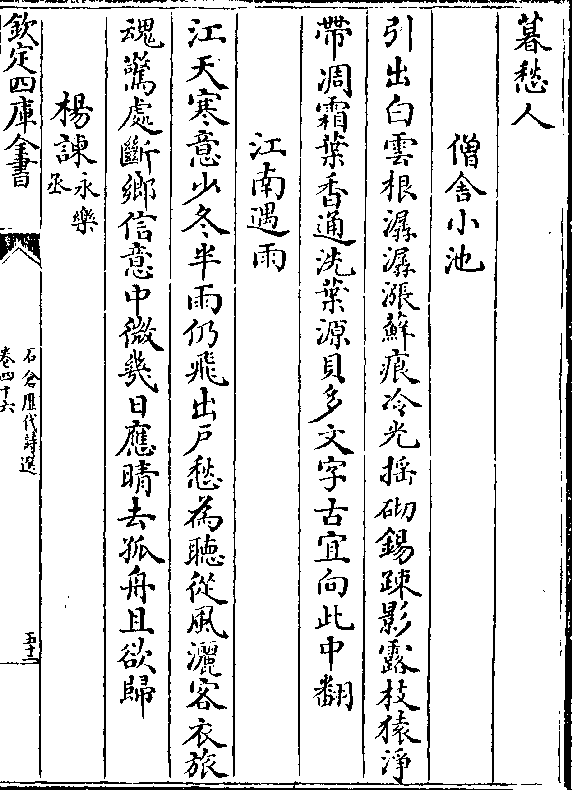 暮愁人
僧舍小池
引出白雲根潺潺漲蘚痕冷光搖砌錫踈影露枝猿淨
帶凋霜葉香通洗葉源貝多文字古宜向此中翻
江南遇雨
江天寒意少冬半雨仍飛出戸愁為聽從風灑客衣旅
魂驚處斷鄉信意中微幾日應晴去孤舟且欲歸
楊諌永樂丞
欽定四庫全書
石倉歷代詩選
卷四十六